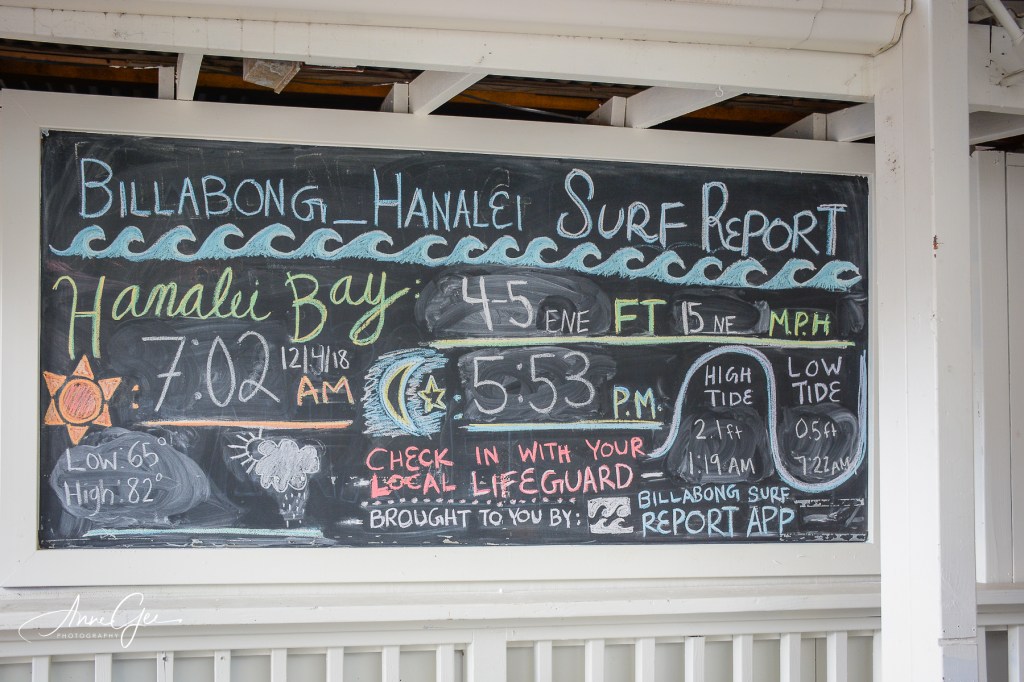 BILLABONG_HANALEI SURF REPORT
Hanalei Bay: 4-5 ENE FT 15 NE M.P.H
: 7:02 12/4/18 AM
: 5:53 P.M.
HIGH TIDE
2.1ft
1:19 AM
LOW TIDE
0.5ft
7:22 AM
Low: 65°
High: 82°
CHECK IN WITH YOUR
LOCAL LIFEGUARD
BROUGHT TO YOU BY:
BILLABONG SURF
REPORT APP
Anne Gee
PHOTOGRAPHY